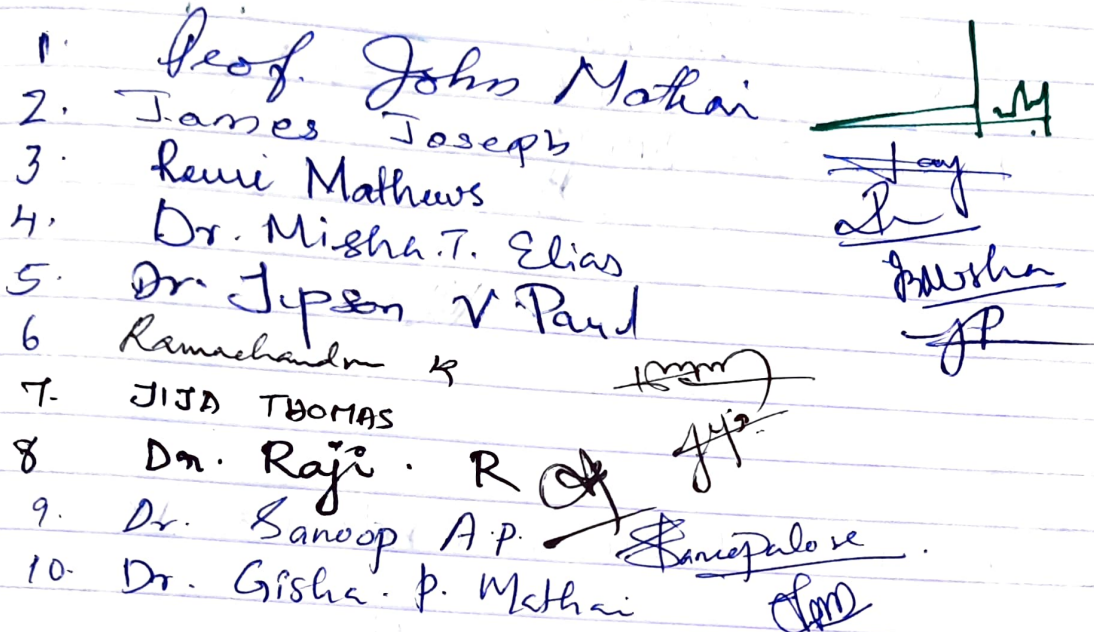 1. Prof. John Mathai
2. James Joseph
3. Remi Mathews
4. Dr. Misha.T. Elias
5. Dr. Jipson V Paul
6 Ramachandran K
7. JIJA THOMAS
8 Dr. Raji. R
9. Dr. Sanoop A.P.
10. Dr. Gisha. P. Mathai